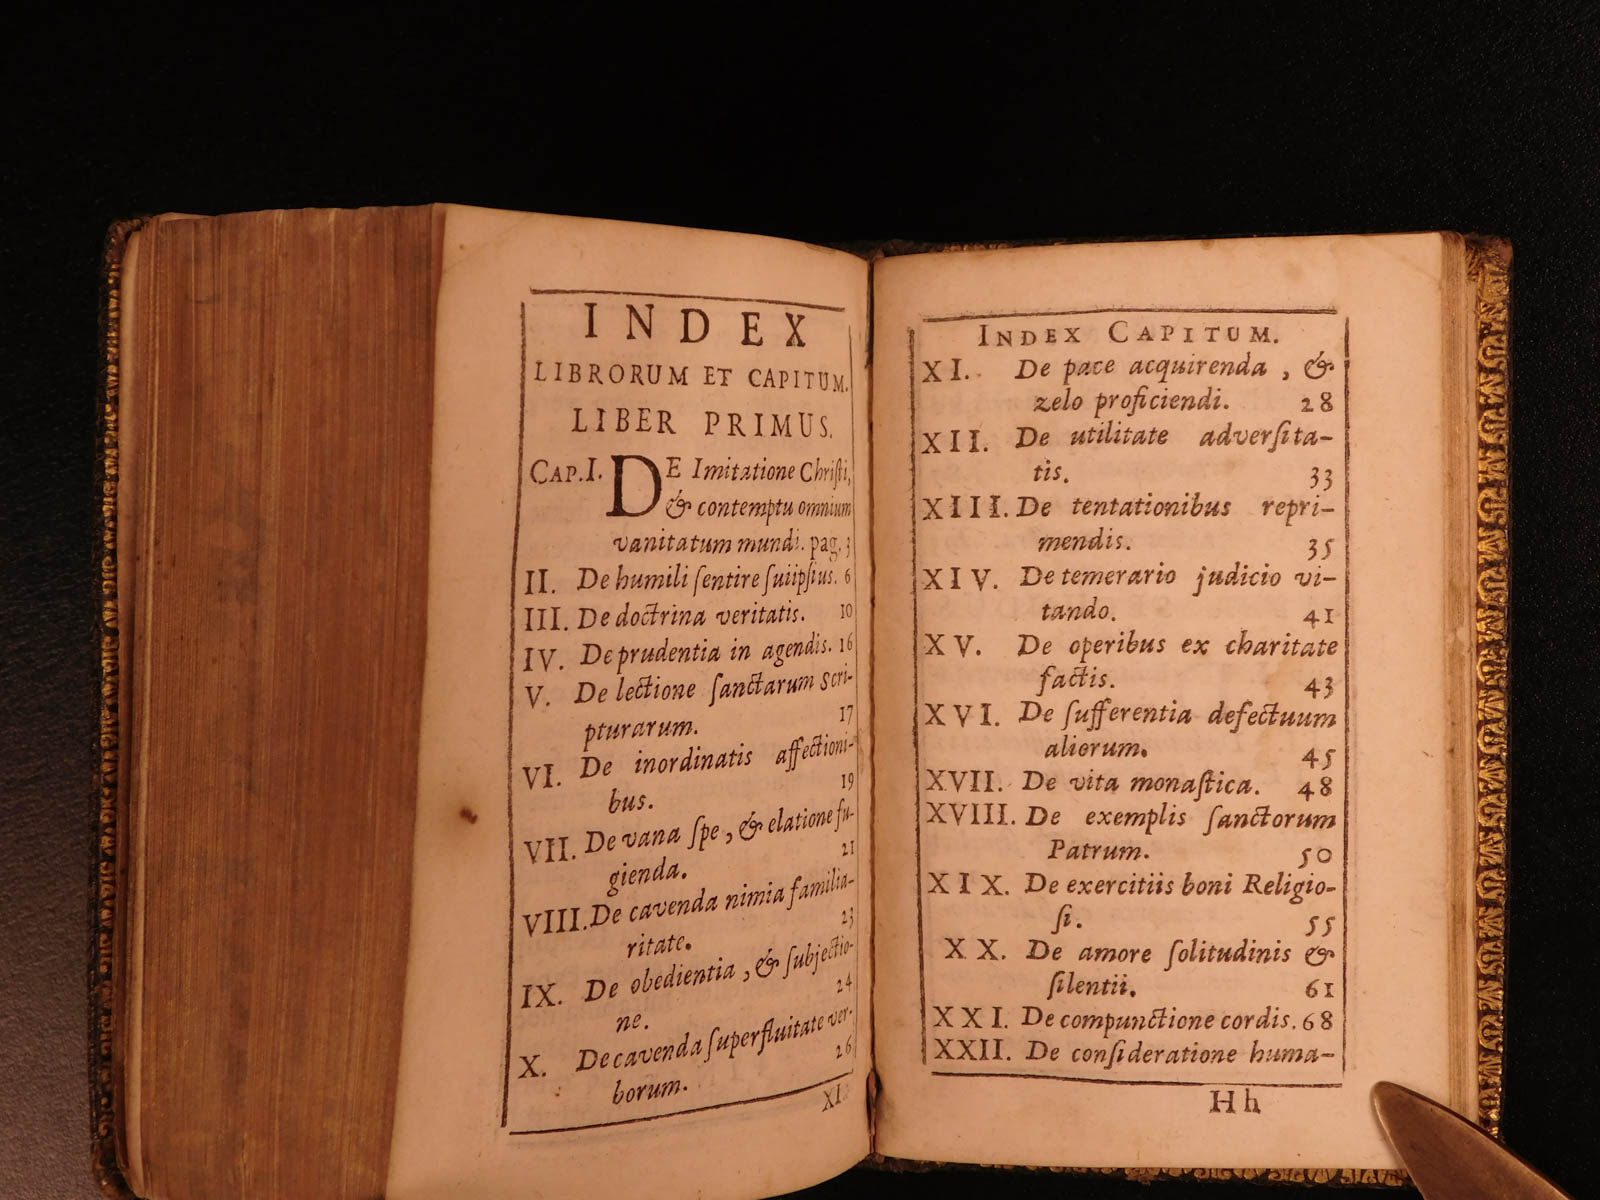 INDEX
LIBRORUM ET CAPITUM.
LIBER PRIMUS.
CAP. I. DE Imitatione Chriſti,
& contemptu omnium
vanitatum mundi. pag. 3
II. De humili ſentire ſuiipſius. 6
III. De doctrina veritatis. 10
IV. De prudentia in agendis. 16
V. De lectione ſanctarum Scri-
pturarum. 17
VI. De inordinatis affectioni-
bus. 19
VII. De vana ſpe, & elatione fu-
gienda. 21
VIII. De cavenda nimia familia-
ritate. 23
IX. De obedientia, & ſubjectio-
ne. 24
X. De cavenda ſuperfluitate ver-
borum. 26
XI.
INDEX CAPITUM.
XI. De pace acquirenda, &
zelo proficiendi. 28
XII. De utilitate adverſita-
tis. 33
XIII. De tentationibus repri-
mendis. 35
XIV. De temerario judicio vi-
tando. 41
XV. De operibus ex charitate
factis. 43
XVI. De ſufferentia defectuum
aliorum. 45
XVII. De vita monaſtica. 48
XVIII. De exemplis ſanctorum
Patrum. 50
XIX. De exercitiis boni Religio-
ſi. 55
XX. De amore ſolitudinis &
ſilentii. 61
XXI. De compunctione cordis. 68
XXII. De conſideratione huma-
Hh